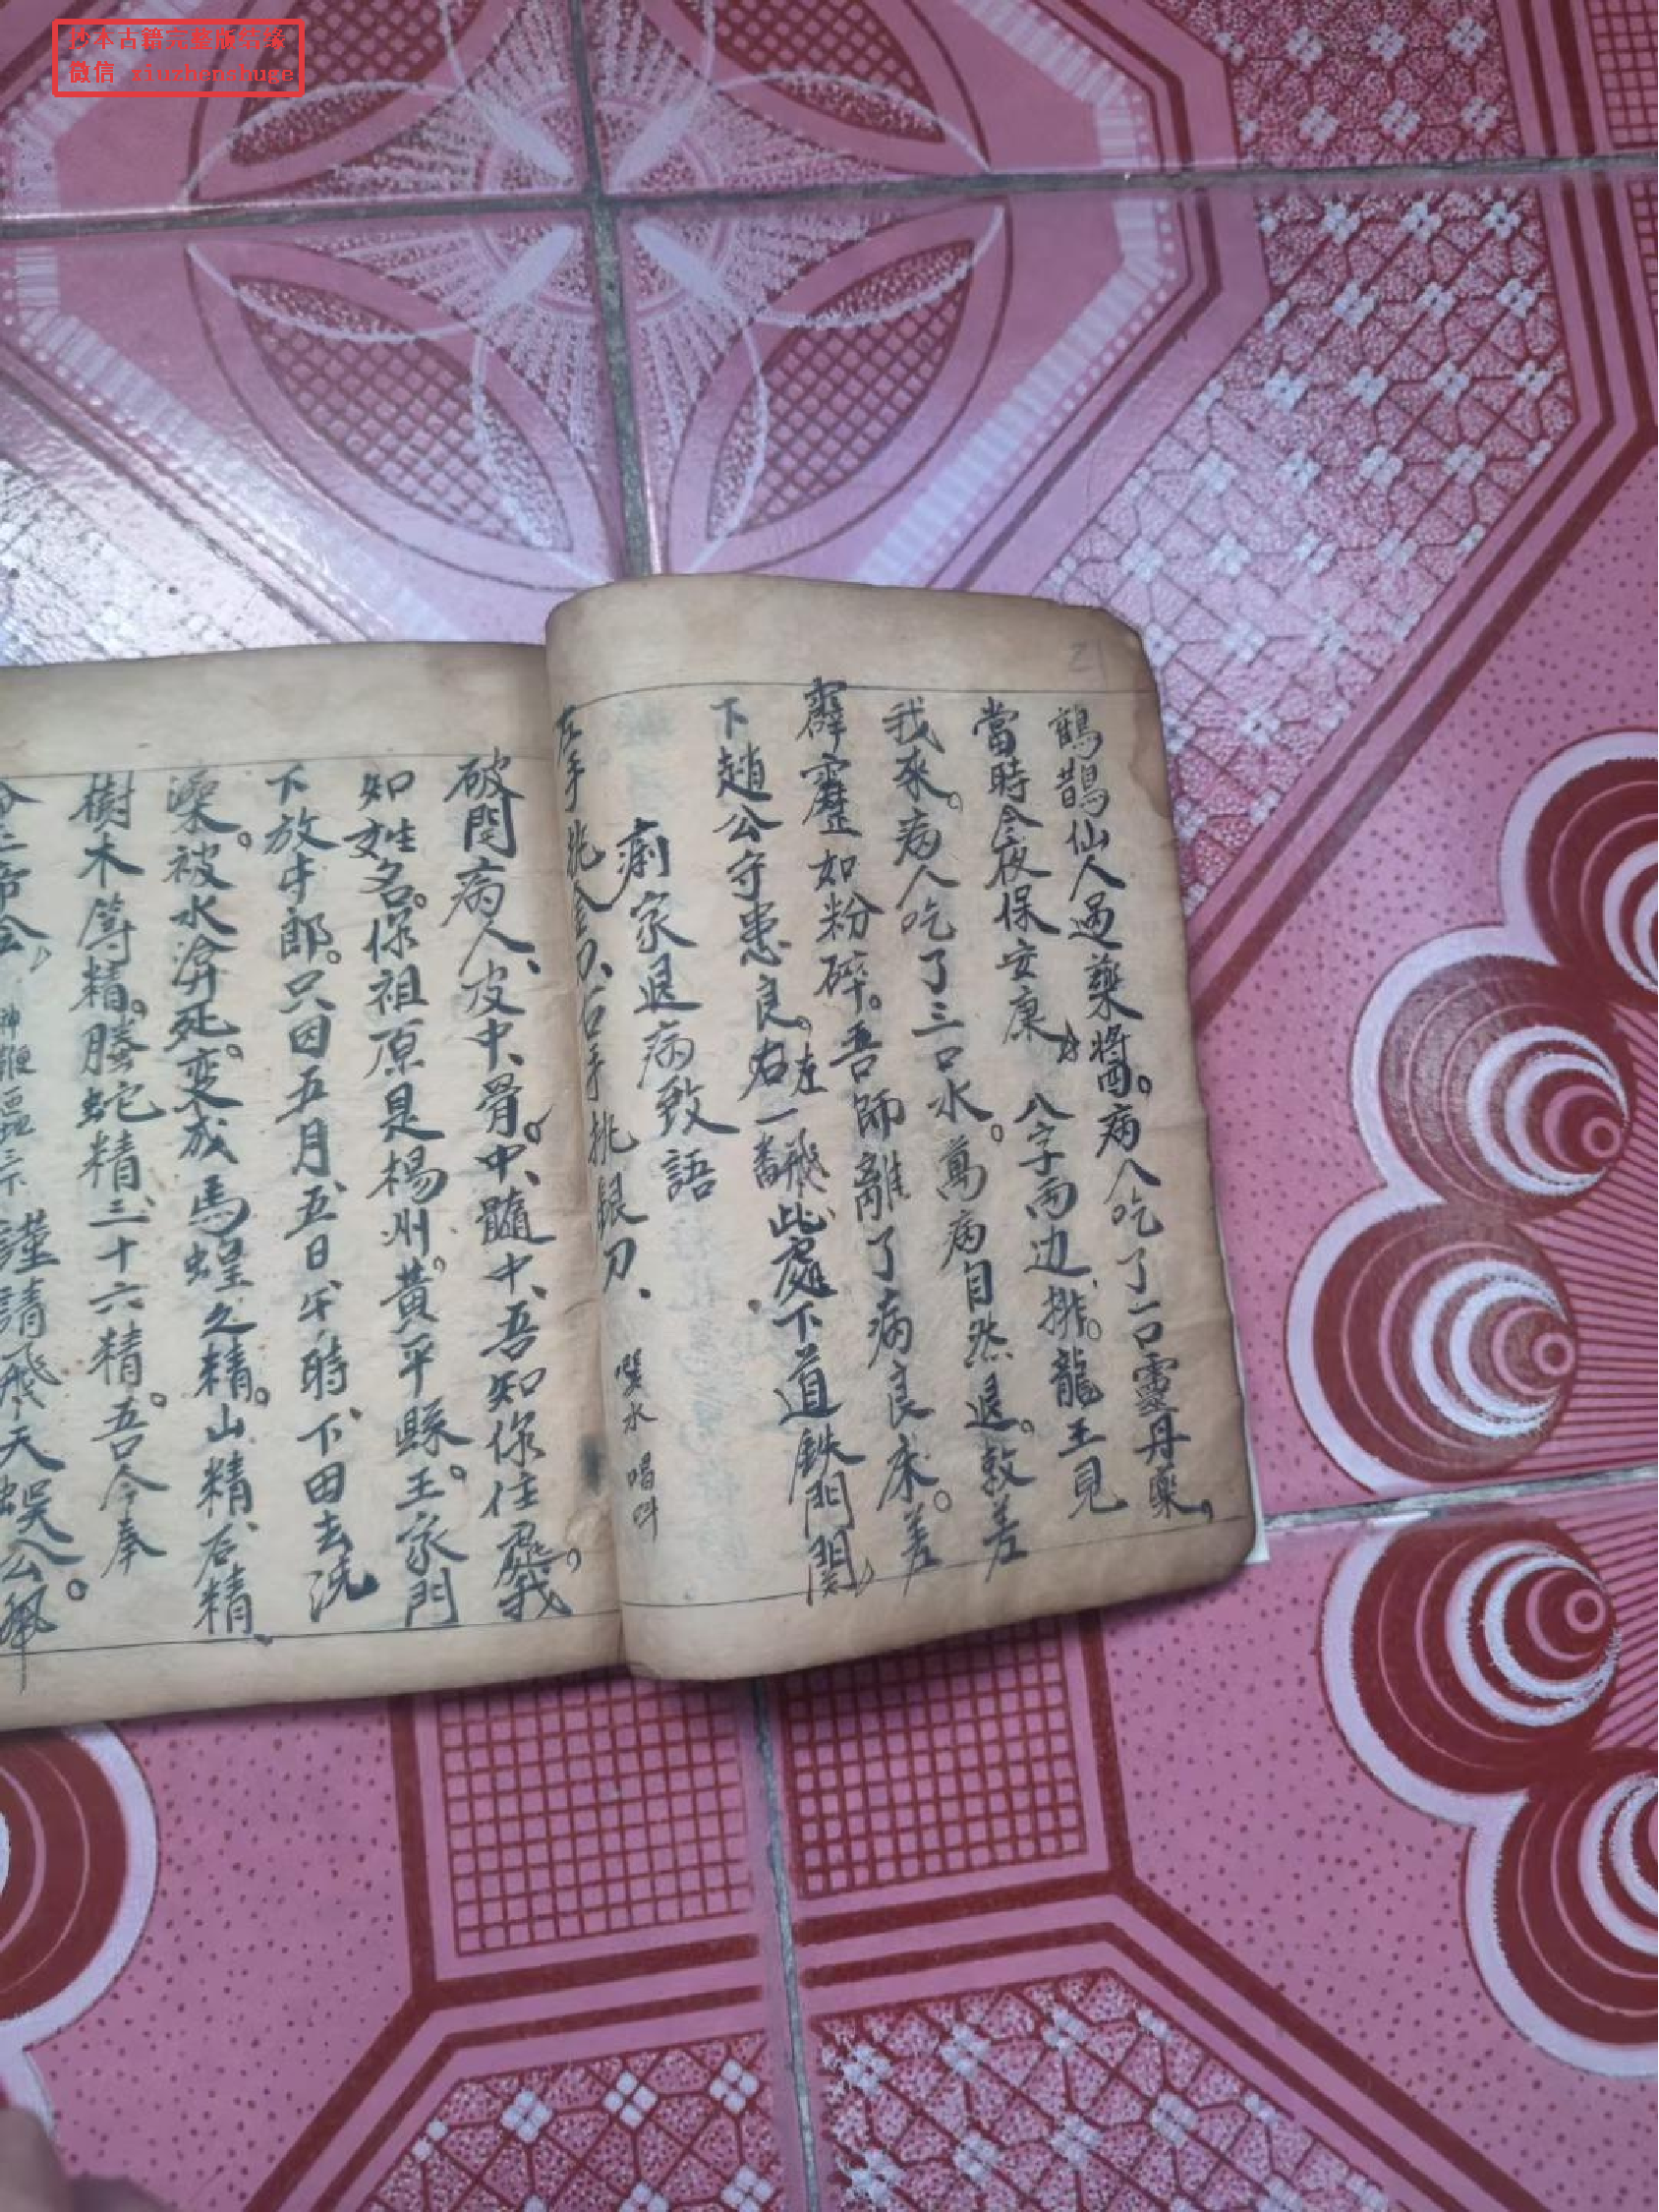 抄本古籍完整版结缘
微信 ziuzhenshuge
21
鶴鵲仙人過藥將酉。病人吃了一口靈丹藥,
當時今夜保安康 八字両边排。龍王見
我來。病人吃了三口水。萬病自然退。敨差
霹靂如粉碎。吾師離了病良床。差
下趙公守患良。左右一翻飛此處下道鉄門関,
痢家退病致語
左手挑金刀、右手挑銀刀、 噀水 唱叫
破開病人、皮中、骨。中、髓中、吾知你住處。我
知姓名。你祖原是楊州。黃平縣。王家門
下放牛郎。只因五月五日午時下田去洗
澡。被水渰死。变成馬蝗之精。山精、石精、
樹木等精。騰蛇精三十六精。吾今奉
神鞭 三下 謹請飛天蜈公